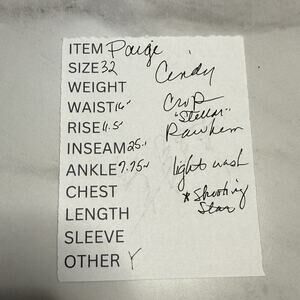 ITEM Paige
SIZE 32
Cindy
WEIGHT
WAIST 16"
Crop
"Stellar"
RISE 11.5"
Raw hem
INSEAM 25"
ANKLE 7.75"
light wash
CHEST
*Shooting
Star
LENGTH
SLEEVE
OTHER Y